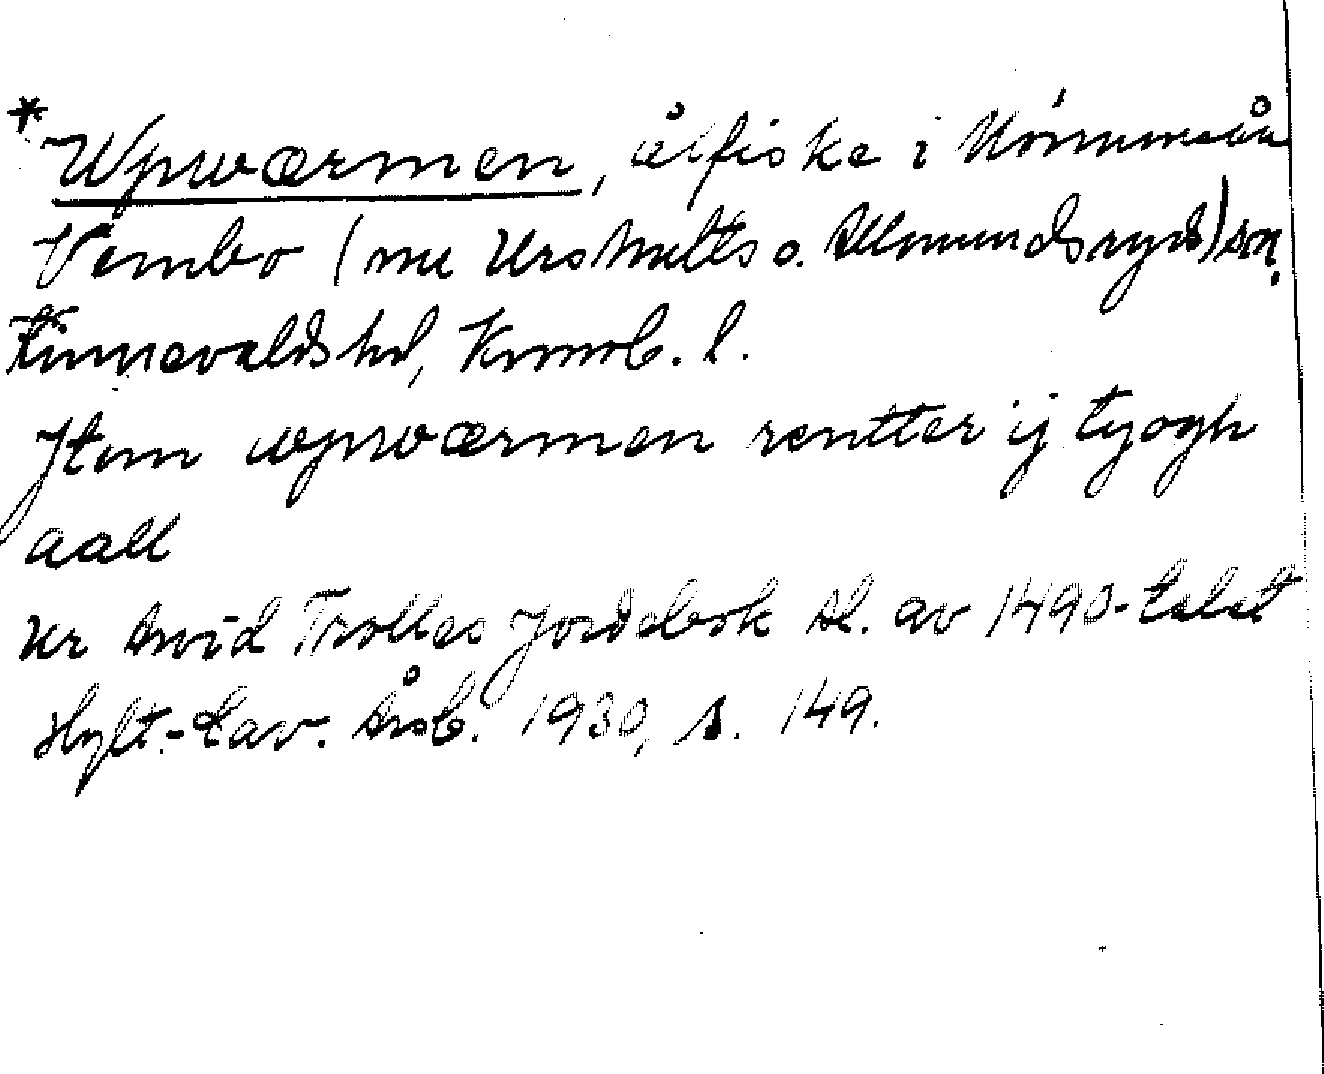 *Wpwærmen, ålfiske i Mörrumsån
Vembo (nu Urshults o. Almundsryds) sn,
Kinnevalds hd, Kronob. l.
Jtem wpwærmen rentter ij tyogh
aall
Ur Arvid Trolles Jordebok sl. av 1490-talet
Hylt.-Cav. Årsb. 1930, s. 149.